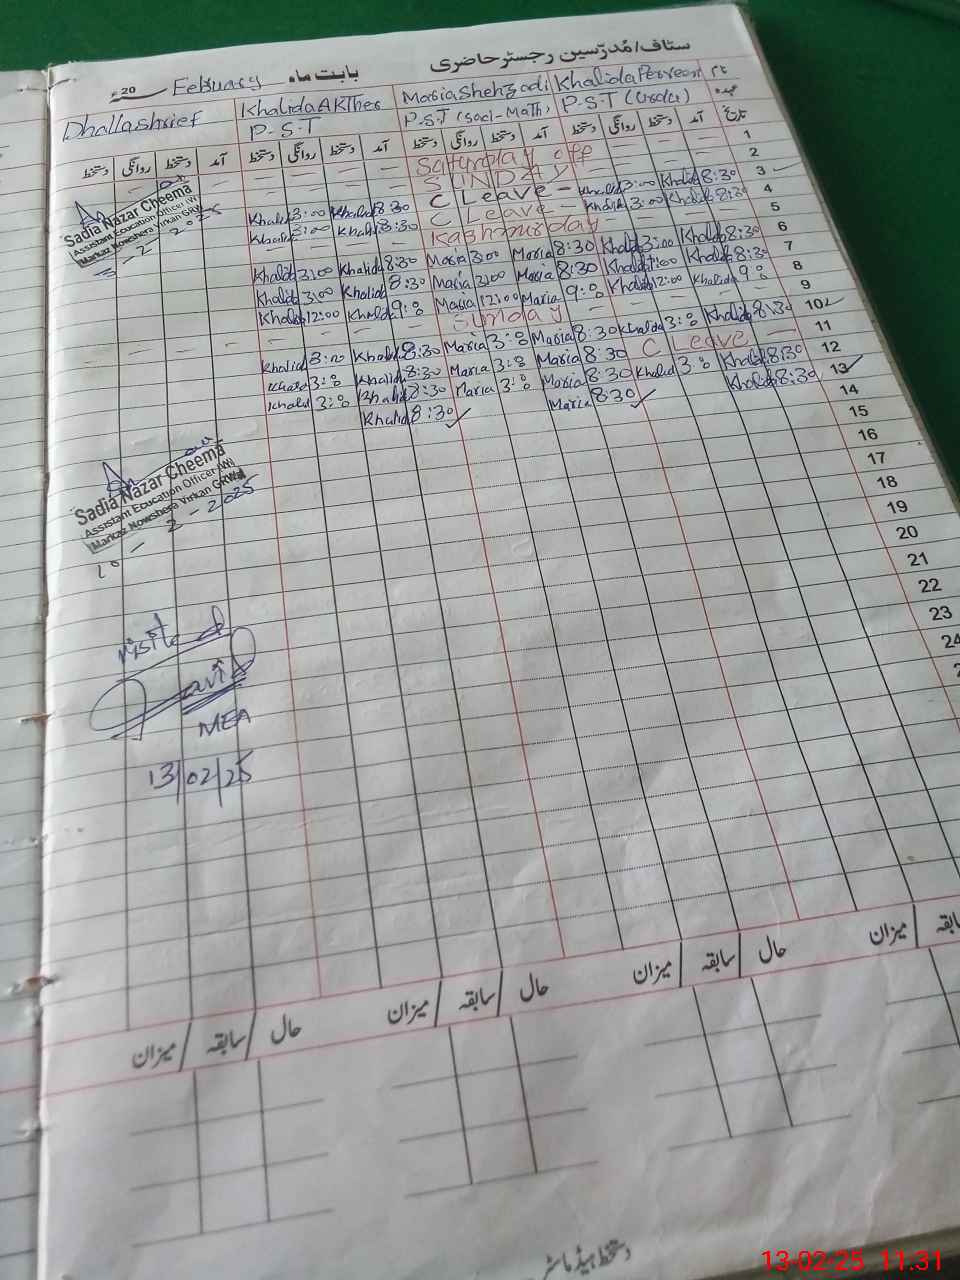 ستاف/مُدرّسین رجسٹر حاضری
بابت ماہ February 20ء
نام Khalida Perveen Maria Shehzadi Khalida AKther Dhallashrief
عہدہ P.S.T (Urdu) P.S.T (Sci-Math) P-S-T
تاریخ آمد دستخط روانگی دستخط آمد دستخط روانگی دستخط آمد دستخط روانگی دستخط آمد دستخط روانگی دستخط
1 Saturday off
2 SUNDAY
3 Khalid 8:30 Khalid 3:00 C Leave Khalid 8:30 Khalid 3:00
4 Khalid 8:30 Khalid 3:00 C Leave Khalid 8:30 Khalid 3:00
5 Kashmir day
6 Khalid 8:30 Khalid 3:00 Maria 8:30 Maria 3:00 Khalid 8:30 Khalid 3:00
7 Khalid 8:30 Khalid 1:00 Maria 8:30 Maria 3:00 Khalid 8:30 Khalid 3:00
8 Khalida 9:0 Khalid 12:00 Maria 9:0 Maria 12:00 Khalid 9:0 Khalid 12:00
9 Sunday
10 Khalid 8:30 Khalid 3:0 Maria 8:30 Maria 3:0 Khalid 8:30 Khalid 3:00
11 C Leave Maria 8:30 Maria 3:0 Khalid 8:30 Khalid 3:0
12 Khalid 8:30 Khalid 3:0 Maria 8:30 Maria 3:0 Khalid 8:30 Khalid 3:0
13 Khalid 8:30 Maria 8:30 Khalid 8:30
14
15
16
17
18
19
20
21
22
23
24
Sadia Nazar Cheema
Assistant Education Officer (W)
Markaz Nowshera Virkan GRW
3-2-2025
Sadia Nazar Cheema
Assistant Education Officer (W)
Markaz Nowshera Virkan GRW
10-2-2025
visited
MEA
13/02/25
سابقہ میزان حال سابقہ میزان حال سابقہ میزان حال سابقہ میزان
دستخط ہیڈ ماسٹر
13-02-25 11:31